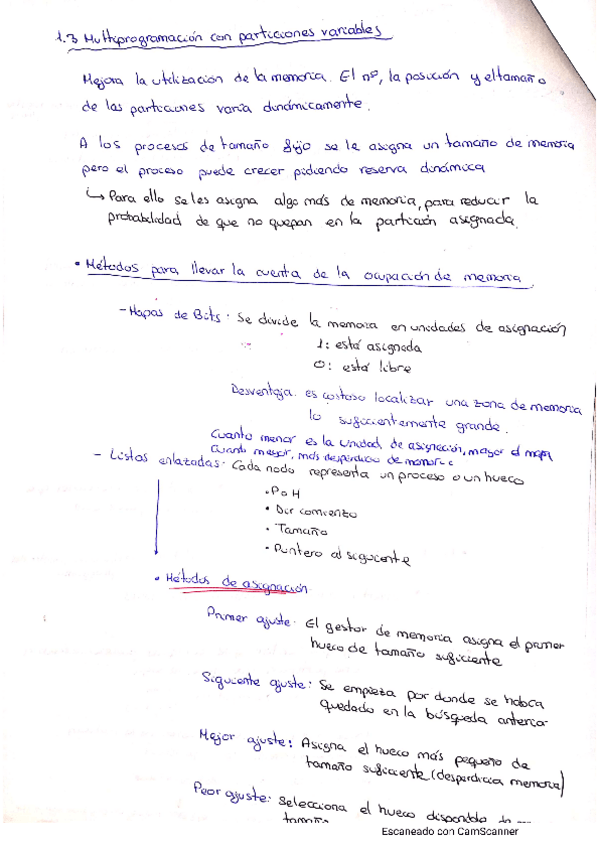 1.3 Multiprogramación con particiones variables
Mejora la utilización de la memoria. El nº, la posición y el tamaño
de las particiones varía dinámicamente.
A los procesos de tamaño fijo se le asigna un tamaño de memoria
pero el proceso puede crecer pidiendo reserva dinámica
↳ Para ello se les asigna algo más de memoria, para reducir la
probabilidad de que no quepan en la partición asignada.
• Métodos para llevar la cuenta de la ocupación de memoria
- Mapas de Bits: Se divide la memoria en unidades de asignación
1: está asignada
0: está libre
Desventaja: es costoso localizar una zona de memoria
lo suficientemente grande.
Cuanto menor es la unidad de asignación, mayor el mapa
Cuanto mayor, más desperdicio de memoria
- Listas enlazadas: Cada nodo representa un proceso o un hueco
• P o H
• Dir comienzo
• Tamaño
• Puntero al siguiente
• Métodos de asignación
Primer ajuste: El gestor de memoria asigna el primer
hueco de tamaño suficiente
Siguiente ajuste: Se empieza por donde se había
quedado en la búsqueda anterior
Mejor ajuste: Asigna el hueco más pequeño de
tamaño suficiente (desperdicia memoria)
Peor ajuste: Selecciona el hueco disponible de
tamaño
Escaneado con CamScanner